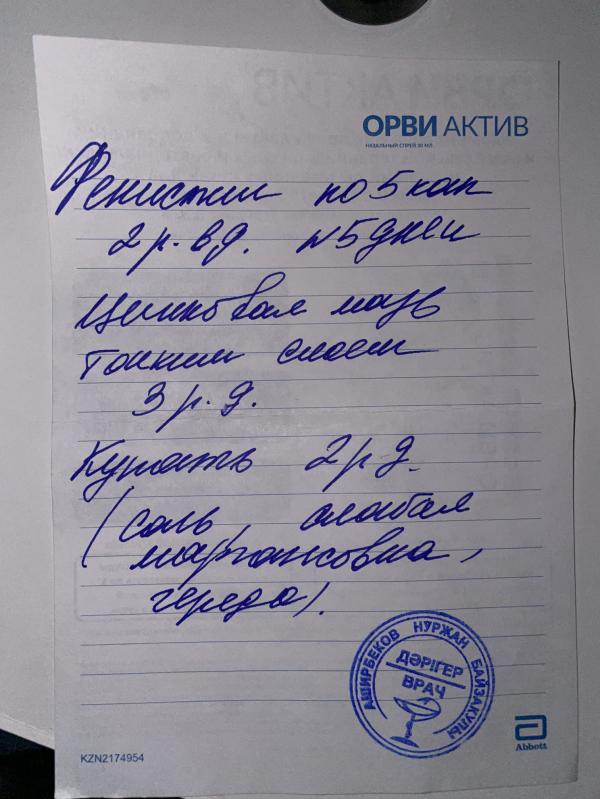 ОРВИ АКТИВ
НАЗАЛЬНЫЙ СПРЕЙ 30 МЛ
Фенистил по 5 кап
2 р. в д. N 5 дней
Цинковая мазь
тонким слоем
3 р. д.
Купать 2 р д.
(соль, слабая
маргансовка,
череда).
АШИРБЕКОВ НУРЖАН БАЙЗАКУЛЫ
ДӘРІГЕР
ВРАЧ
KZN2174954
Abbott